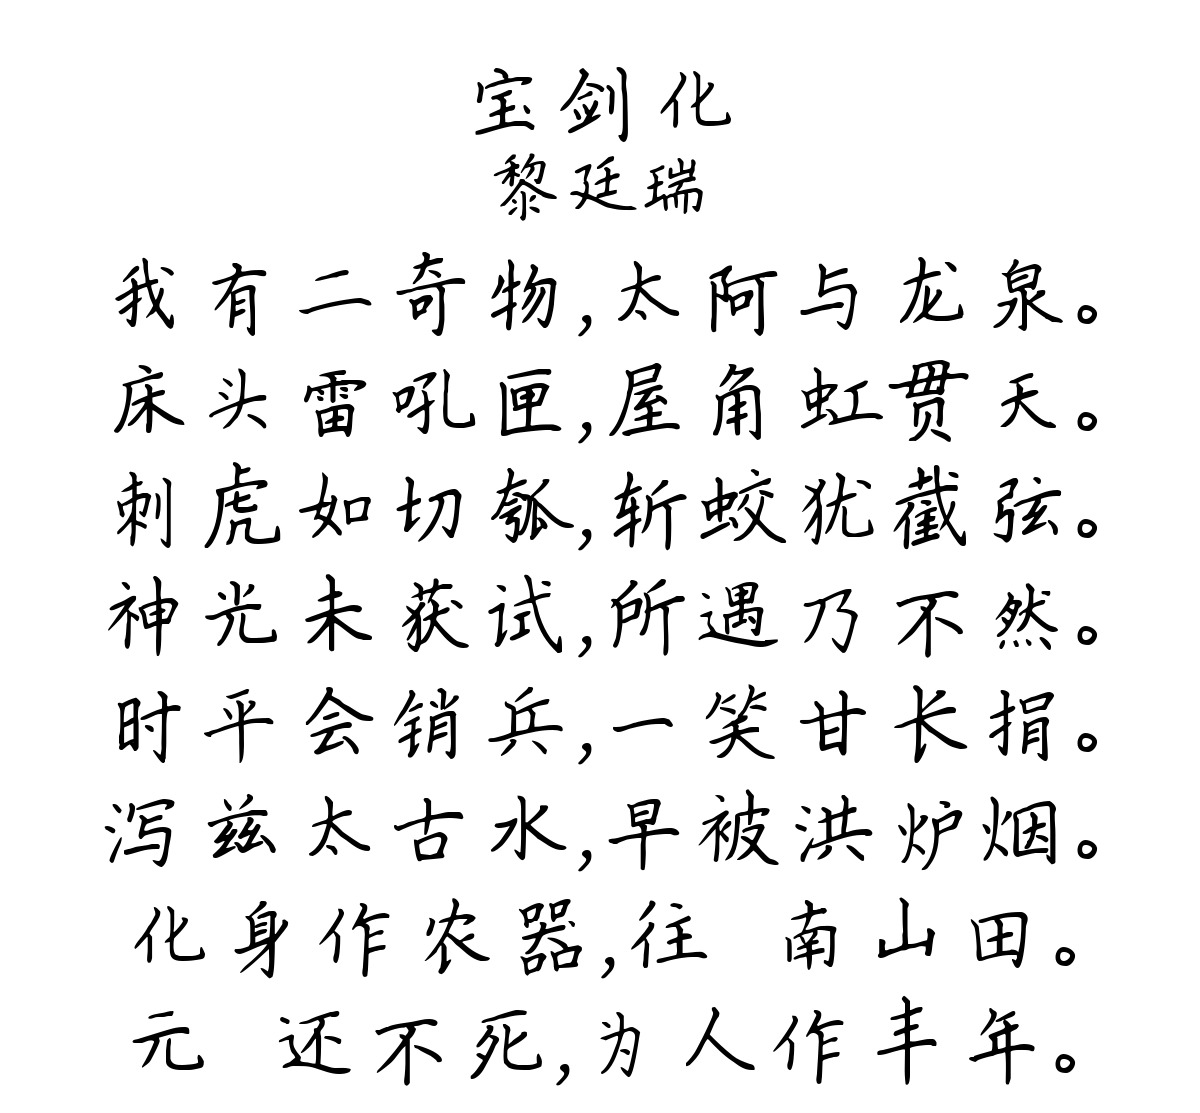 宝剑化
黎廷瑞
我有二奇物,太阿与龙泉。
床头雷吼匣,屋角虹贯天。
刺虎如切瓠,斩蛟犹截弦。
神光未获试,所遇乃不然。
时平会销兵,一笑甘长捐。
泻兹太古水,早被洪炉烟。
化身作农器,往 南山田。
元 还不死,为人作丰年。